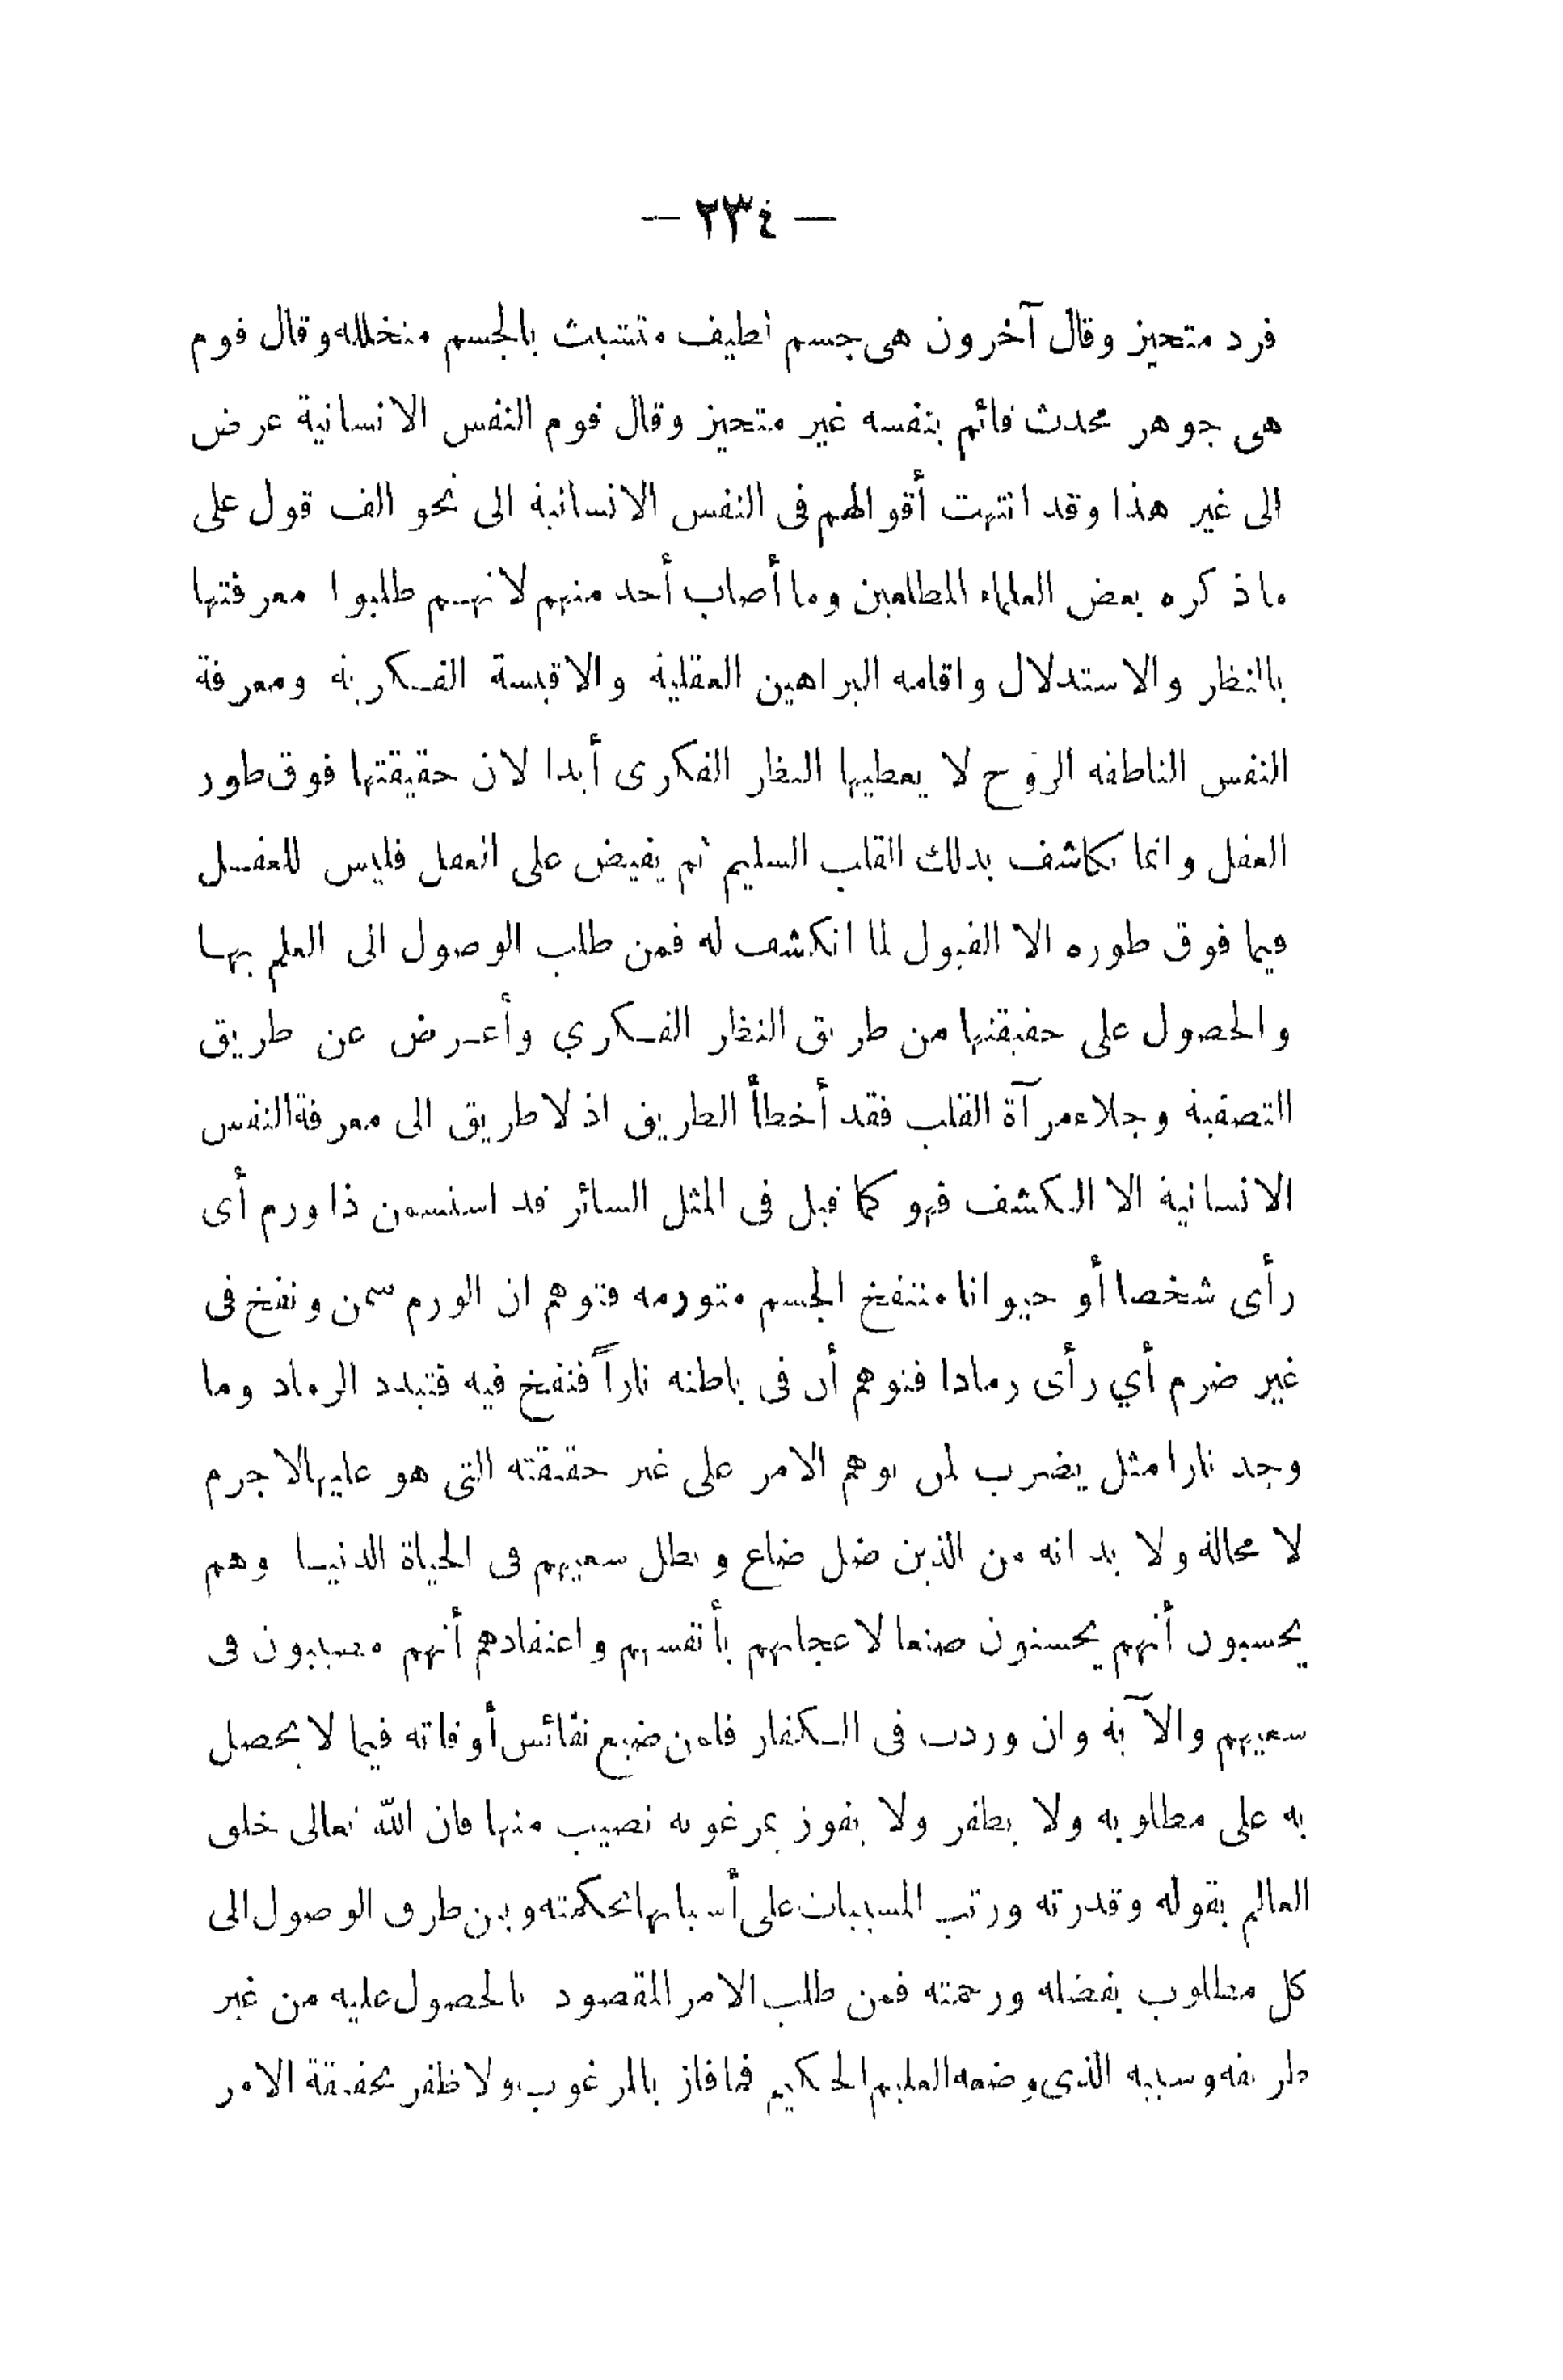 — ٢٣٤ —
فرد متحيز وقال آخرون هى جسم لطيف متشبث بالجسم متخلله وقال قوم
هى جوهر محدث قائم بنفسه غير متحيز وقال قوم النفس الانسانية عرض
الى غير هذا وقد انتهت أقوالهم فى النفس الانسانية الى نحو الف قول على
ماذ كره بعض العلماء المطلعين وما أصاب أحد منهم لانهم طلبوا معرفتها
بالنظر والاستدلال واقامه البراهين العقلية والاقيسة الفكرية ومعرفة
النفس الناطقه الروح لا يعطيها النظر الفكرى أبدا لان حقيقتها فوق طور
العقل وانما يكاشف بذلك القلب السليم ثم يفيض على العقل فليس للعقل
فيما فوق طوره الا القبول لما انكشف له فمن طلب الوصول الى العلم بها
والحصول على حقيقتها من طريق النظر الفكري وأعرض عن طريق
التصفية وجلاء مرآة القلب فقد أخطأ الطريق اذ لا طريق الى معرفة النفس
الانسانية الا الكشف فهو كما قيل فى المثل السائر قد استسمن ذا ورم أى
رأى شخصا أو حيوانا منتفخ الجسم متورمه فتوهم ان الورم سمن ونفخ فى
غير ضرم أي رأى رمادا فتوهم أن فى باطنه ناراً فنفخ فيه فتبدد الرماد وما
وجد نارا مثل يضرب لمن توهم الامر على غير حقيقته التى هو عليها لا جرم
لا محالة ولا بد انه من الذين ضل ضاع وبطل سعيهم فى الحياة الدنيا وهم
يحسبون أنهم يحسنون صنعا لاعجابهم بأنفسهم واعتقادهم أنهم مصيبون فى
سعيهم والآية وان وردت فى الكفار فلمن ضيع نفائس أوقاته فيما لا يحصل
به على مطلوبه ولا يظفر ولا يفوز بمرغوبه نصيب منها فان الله تعالى خلق
العالم بقوله وقدرته ورتب المسببات على أسبابها بحكمته وبين طرق الوصول الى
كل مطلوب بفضله ورحمته فمن طلب الامر المقصود بالحصول عليه من غير
طريقه وسببه الذى وضعه العليم الحكيم فما فاز بالمرغوب ولا ظفر بحقيقة الامر